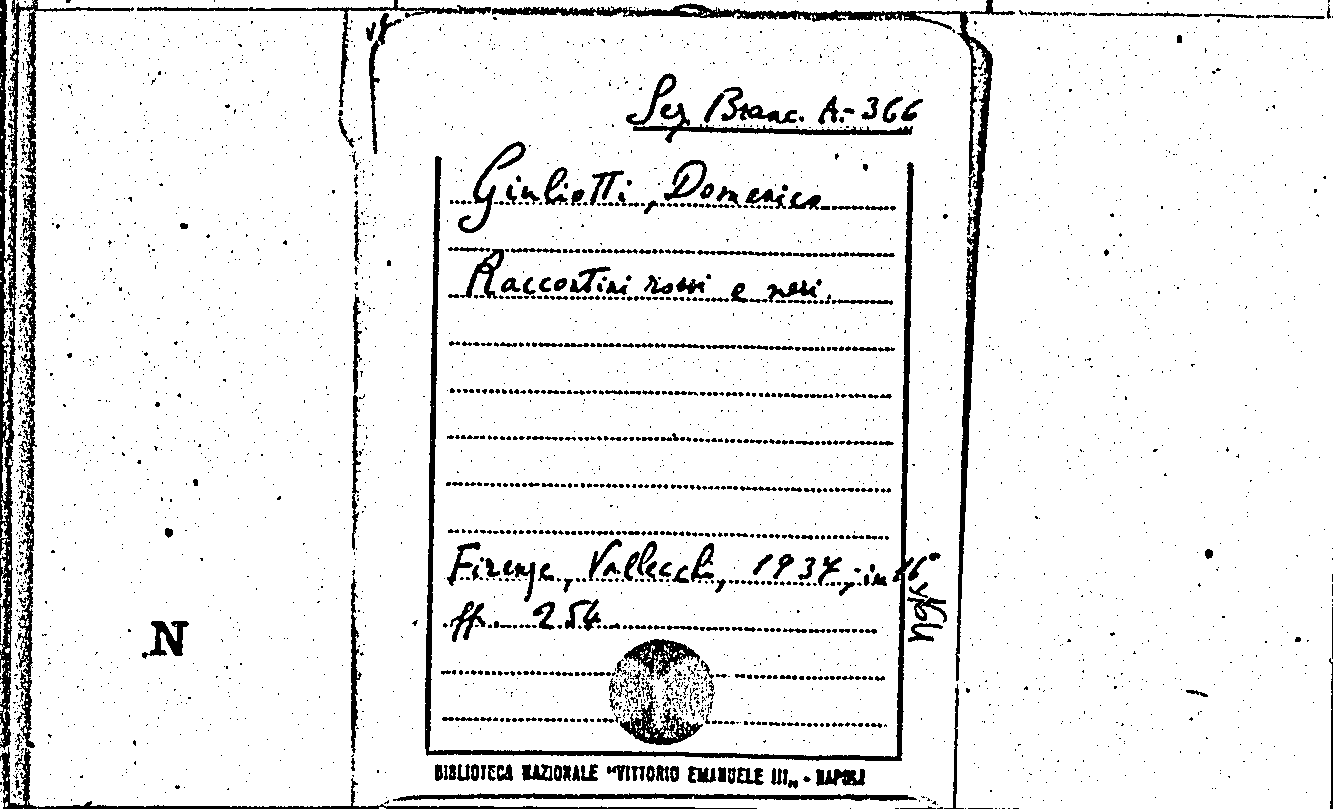 Sez. Branc. A.-366
Giuliotti, Domenico
Raccontini rossi e neri.
Firenze, Vallecchi, 1937, in 16°
pp. 254.
N
BIBLIOTECA NAZIONALE "VITTORIO EMANUELE III„ - NAPOLI